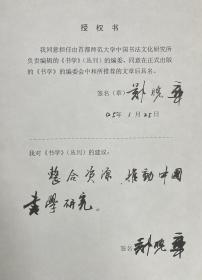 授 权 书
我同意担任由首都师范大学中国书法文化研究所
负责编辑的《书学》(丛刊)的编委。同意在正式出版
的《书学》的编委会中和所推荐的文章后具名。
签名（章）
05年 1月 25日
我对《书学》(丛刊)的建议：
整合资源，推动中国
書學研究。
签名